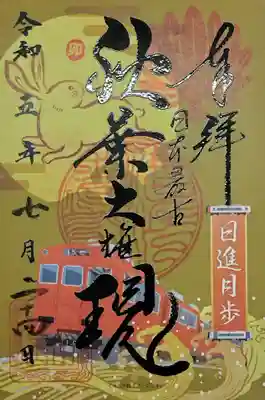 奉拝
日本最古
日進日歩
秋葉大権現
卯
令和五年七月二十四日